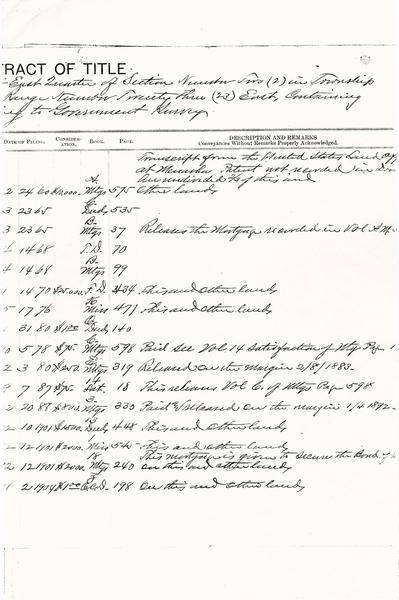 TRACT OF TITLE
East Quarter of Section Number Two (2) in Township
Range Number Twenty three (23) East, Containing
to Government Survey
DATE OF FILING. CONSIDERATION. BOOK. PAGE. DESCRIPTION AND REMARKS
Conveyances Without Remarks Properly Acknowledged.
Transcript from the United States Land
at Menasha Patent not recorded in
An undivided ½ of this and
2 24 60 Mtgs 575 other lands
3 23 65 Deeds 535
3 23 65 Mtgs 37 Releases the Mortgage recorded in Vol A
14 68 F.D. 70
14 68 Mtgs 99
1 14 70 F.D. 434 This and other lands
5 17 76 Miss 477 This and other lands
1 31 80 Deeds 140
5 78 $75. Mtgs 598 Paid See Vol 14 Satisfaction of Mtg Pg 1
2 3 80 $250. Mtgs 319 Released on the margin 2/8/1883
9 7 87 $75. Sat. 18 This releases Vol C. of Mtgs Pg 598
2 20 88 Mtgs 330 Paid & released on the margin 1/4 1892
2 10 1901 Deeds 448 This and other lands
2 12 1901 Miss 545 This and other lands
This mortgage is given to secure the Bond
2 12 1901 Mtgs 240 on this and other lands
1 2 1904 198 On this and other lands